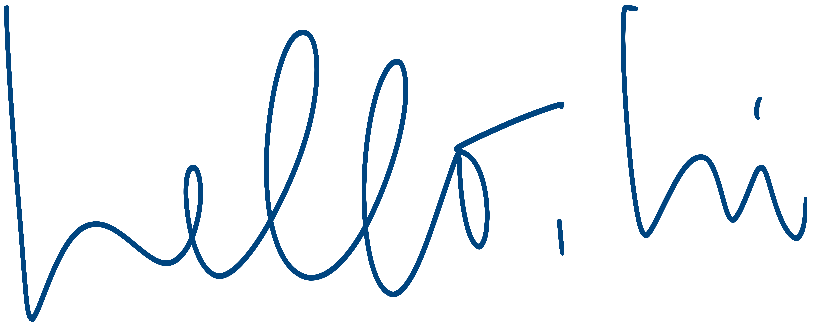 hello, hi